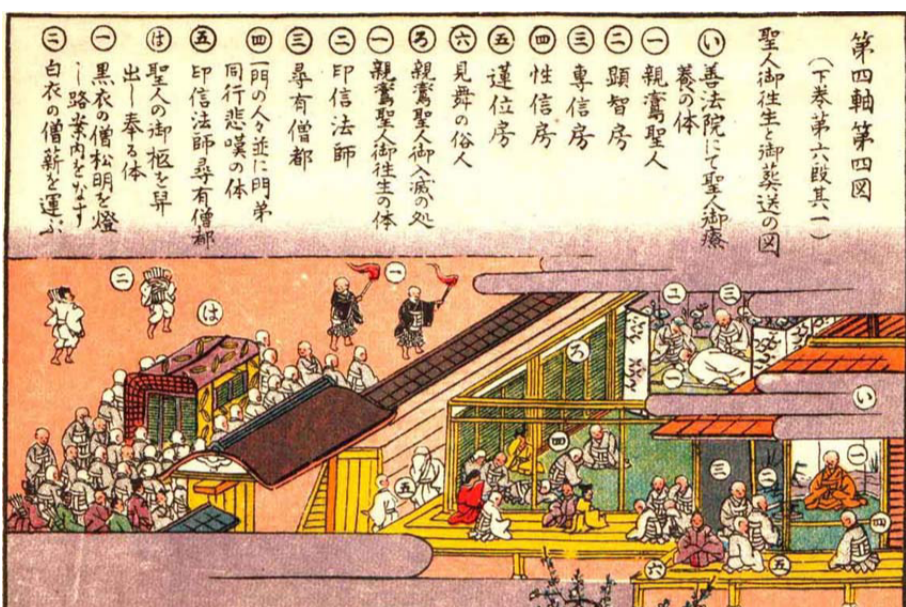 第四軸第四図
(下巻第六段其一)
聖人御往生と御葬送の図
い 善法院にて聖人御療
養の体
一 親鸞聖人
二 顕智房
三 専信房
四 性信房
五 蓮位房
六 見舞の俗人
ろ 親鸞聖人御入滅の処
一 親鸞聖人御往生の体
二 印信法師
三 尋有僧都
四 一門の人々並に門弟
同行悲嘆の体
五 印信法師尋有僧都
は 聖人の御柩を舁
出し奉る体
一 黒衣の僧松明を燈
し路案内をなす
二 白衣の僧薪を運ぶ
二
一
は
二
三
ろ
一
い
四
三
二
一
五
四
六
五